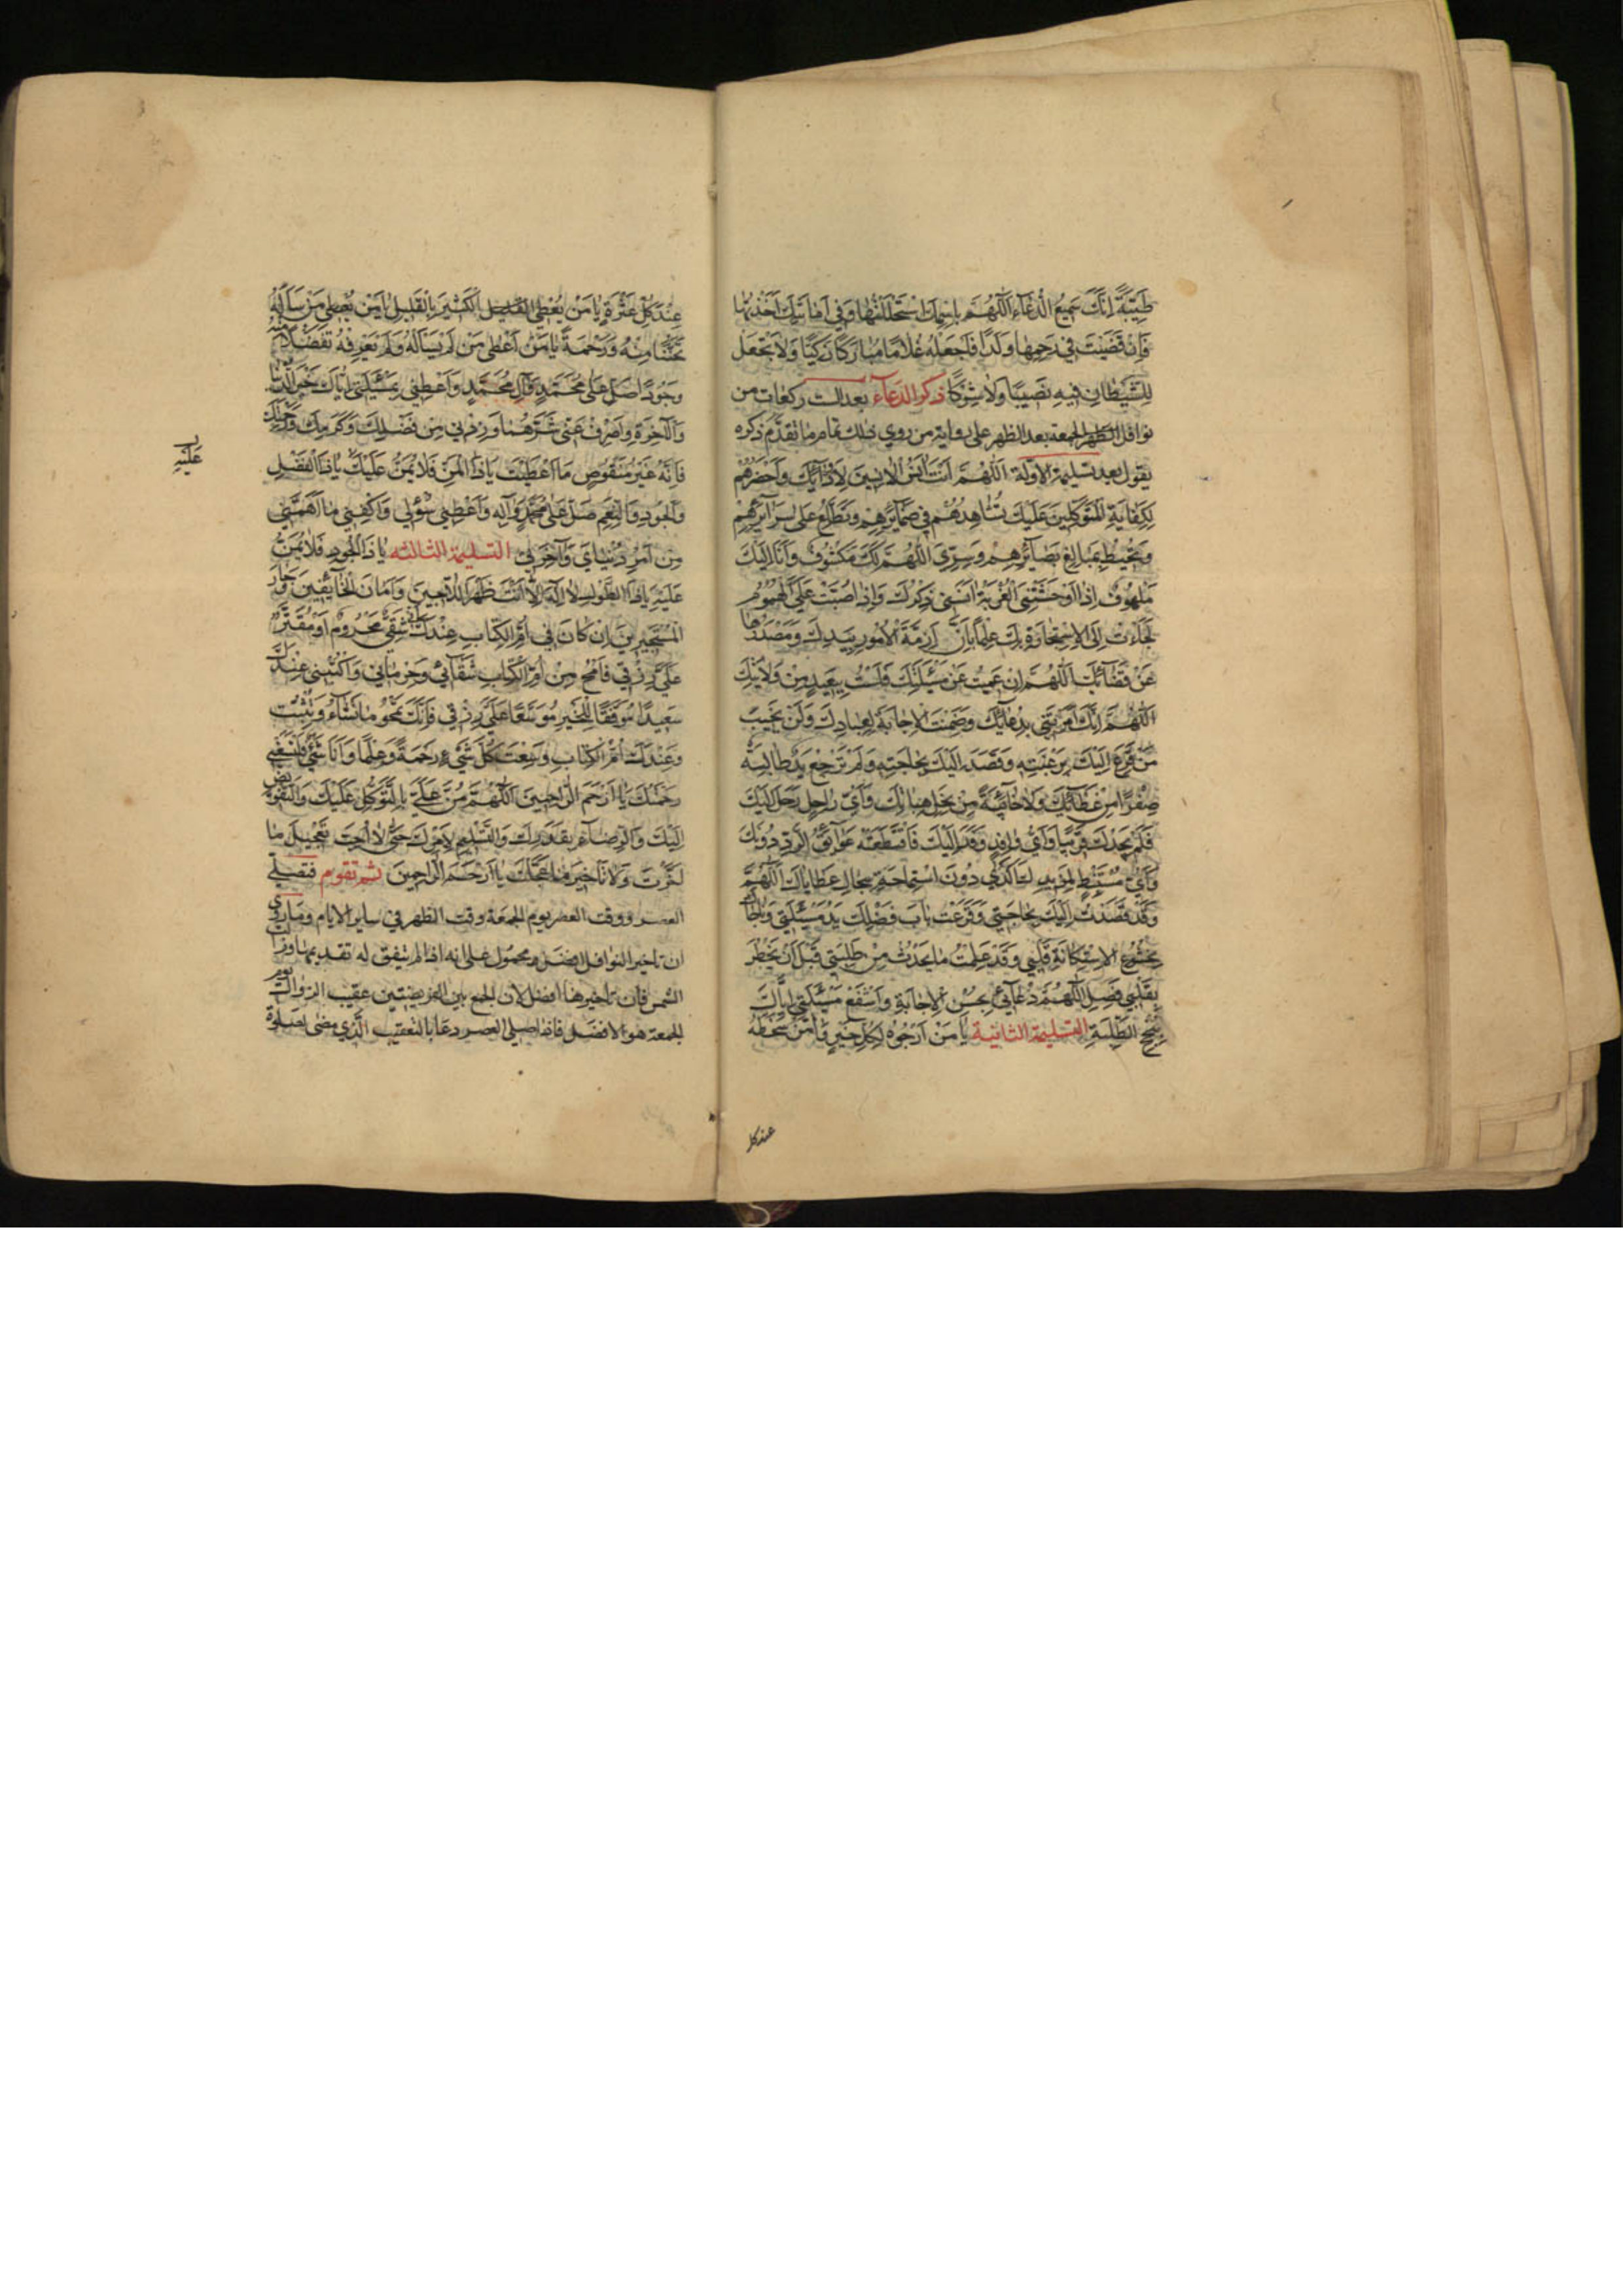 طَيِّبَةً اِنَّكَ سَمِيعُ الدُّعَآءِ اَللّٰهُمَّ بِاسْمِكَ اسْتَحْلَلْتُهَا وَفِي اَمَانَتِكَ اَخَذْتُهَا
فَاِنْ قَضَيْتَ فِي رَحِمِهَا وَلَدًا فَاجْعَلْهُ غُلَامًا مُبَارَكًا زَكِيًّا وَلَا تَجْعَلْ
لِلشَّيْطَانِ فِيهِ نَصِيبًا وَلَا شِرْكًا ذكر الدعآء بعد الست ركعات من
نوافل الظهر الجمعة بعد الظهر على رواية من روي ذلك تمام ما تقدّم ذكره
يقول بعد تسليمة الاولة اَللّٰهُمَّ اَنْتَ اٰنَسُ الْاٰنِسِينَ لِاَوِدَّائِكَ وَاَحْضَرُهُمْ
لِكِفَايَةِ الْمُتَوَكِّلِينَ عَلَيْكَ تُشَاهِدُهُمْ فِي ضَمَآئِرِهِمْ وَتَطَّلِعُ عَلَى سَرَآئِرِهِمْ
وَتُحِيطُ بِمَبَالِغِ بَصَآئِرِهِمْ وَسِرِّي اَللّٰهُمَّ لَكَ مَكْشُوفٌ وَاَنَا اِلَيْكَ
مَلْهُوفٌ اِذَا اَوْحَشَتْنِي الْغُرْبَةُ اٰنَسَنِي ذِكْرُكَ وَاِذَا صُبَّتْ عَلَيَّ الْهُمُومُ
لَجَاْتُ اِلَى الْاِسْتِجَارَةِ بِكَ عِلْمًا بِاَنَّ اَزِمَّةَ الْاُمُورِ بِيَدِكَ وَمَصْدَرَهَا
عَنْ قَضَآئِكَ اَللّٰهُمَّ اِنْ عَمِيتُ عَنْ مَسْئَلَتِكَ فَلَسْتُ بِبَعِيدٍ مِنْ وَلَايَتِكَ
اَللّٰهُمَّ اِنَّكَ اَمَرْتَنِي بِدُعَائِكَ وَضَمِنْتَ الْاِجَابَةَ لِعِبَادِكَ وَلَنْ يَخِيبَ
مَنْ فَزِعَ اِلَيْكَ بِرَغْبَتِهِ وَقَصَدَ اِلَيْكَ بِحَاجَتِهِ وَلَمْ تَرْجِعْ يَدٌ طَالِبَةٌ
صِفْرًا مِنْ عَطَآئِكَ وَلَا خَائِبَةً مِنْ نِحَلِ هِبَاتِكَ وَاَيُّ رَاحِلٍ رَحَلَ اِلَيْكَ
فَلَمْ يَجِدْكَ قَرِيبًا وَاَيُّ وَافِدٍ وَفَدَ اِلَيْكَ فَاقْتَطَعَتْهُ عَوَآئِقُ الرَّدِّ دُونَكَ
وَاَيُّ مُسْتَنْبِطٍ لِمَزِيدِكَ اَكْدَى دُونَ اسْتِمَاحَةِ سِجَالِ عَطَايَاكَ اَللّٰهُمَّ
وَقَدْ قَصَدْتُ اِلَيْكَ بِحَاجَتِي وَقَرَعَتْ بَابَ فَضْلِكَ يَدُ مَسْئَلَتِي وَنَاجَاكَ
بِخُشُوعِ الْاِسْتِكَانَةِ قَلْبِي وَقَدْ عَلِمْتَ مَا يَحْدُثُ مِنْ طَلِبَتِي قَبْلَ اَنْ يَخْطُرَ
بِقَلْبِي فَصِلِ اللّٰهُمَّ دُعَآئِي بِحُسْنِ الْاِجَابَةِ وَاشْفَعْ مَسْئَلَتِي اِيَّاكَ
بِنُجْحِ الطَّلِبَةِ التسليمة الثانية يَا مَنْ اَرْجُوهُ لِكُلِّ خَيْرٍ وَاٰمَنُ سَخَطَهُ
عند كل
عِنْدَ كُلِّ عَثْرَةٍ يَا مَنْ يُعْطِي الْكَثِيرَ بِالْقَلِيلِ يَا مَنْ يُعْطِي مَنْ سَاَلَهُ
تَحَنُّنًا مِنْهُ وَرَحْمَةً يَا مَنْ اَعْطَى مَنْ لَمْ يَسْاَلْهُ وَلَمْ يَعْرِفْهُ تَفَضُّلًا مِنْهُ
وَجُودًا صَلِّ عَلَى مُحَمَّدٍ وَاٰلِ مُحَمَّدٍ وَاَعْطِنِي بِمَسْئَلَتِي اِيَّاكَ خَيْرَ الدُّنْيَا
وَالْاٰخِرَةِ وَاصْرِفْ عَنِّي شَرَّهُمَا وَزِدْنِي مِنْ فَضْلِكَ وَكَرَمِكَ
فَاِنَّهُ غَيْرُ مَنْقُوصٍ مَا اَعْطَيْتَ يَا ذَا الْمَنِّ فَلَا يُمَنُّ عَلَيْكَ يَا ذَا الْفَضْلِ
وَالْجُودِ وَالنِّعَمِ صَلِّ عَلَى مُحَمَّدٍ وَاٰلِهِ وَاَعْطِنِي سُؤْلِي وَاكْفِنِي مَا اَهَمَّنِي
مِنْ اَمْرِ دُنْيَايَ وَاٰخِرَتِي التسليمة الثالثه يَا ذَا الْجُودِ فَلَا يُمَنُّ
عَلَيْهِ يَا ذَا الطَّوْلِ لَا اِلٰهَ اِلَّا اَنْتَ ظَهْرَ اللَّاجِينَ وَاَمَانَ الْخَآئِفِينَ وَجَارَ
الْمُسْتَجِيرِينَ اِنْ كَانَ فِي اُمِّ الْكِتَابِ عِنْدَكَ اَنِّي شَقِيٌّ مَحْرُومٌ اَوْ مُقَتَّرٌ
عَلَيَّ رِزْقِي فَامْحُ مِنْ اُمِّ الْكِتَابِ شَقَآئِي وَحِرْمَانِي وَاكْتُبْنِي عِنْدَكَ
سَعِيدًا مُوَفَّقًا لِلْخَيْرِ مُوَسَّعًا عَلَيَّ رِزْقِي فَاِنَّكَ تَمْحُو مَا تَشَاءُ وَتُثْبِتُ
وَعِنْدَكَ اُمُّ الْكِتَابِ وَسِعْتَ كُلَّ شَيْءٍ رَحْمَةً وَعِلْمًا وَاَنَا شَيْءٌ فَلْتَسَعْنِي
رَحْمَتُكَ يَا اَرْحَمَ الرَّاحِمِينَ اَللّٰهُمَّ مُنَّ عَلَيَّ بِالتَّوَكُّلِ عَلَيْكَ وَالتَّفْوِيضِ
اِلَيْكَ وَالرِّضَآءِ بِقَدَرِكَ وَالتَّسْلِيمِ لِاَمْرِكَ حَتّٰى لَا اُحِبَّ تَعْجِيلَ مَا
اَخَّرْتَ وَلَا تَاْخِيرَ مَا عَجَّلْتَ يَا اَرْحَمَ الرَّاحِمِينَ ثم تقوم فتصلي
العصر ووقت العصر يوم الجمعة وقت الظهر في ساير الايام وما روي
ان تاخير النوافل افضل محمول على انه اذا لم يتفق له تقديمها وزالت
الشمس فان تاخيرها افضل لان الجمع بين الفريضتين عقيب الزوال يوم
الجمعة هو الافضل فاذا صلى العصر دعا بالتعقيب الذي مضى لصلوة
عَلَيْهِ